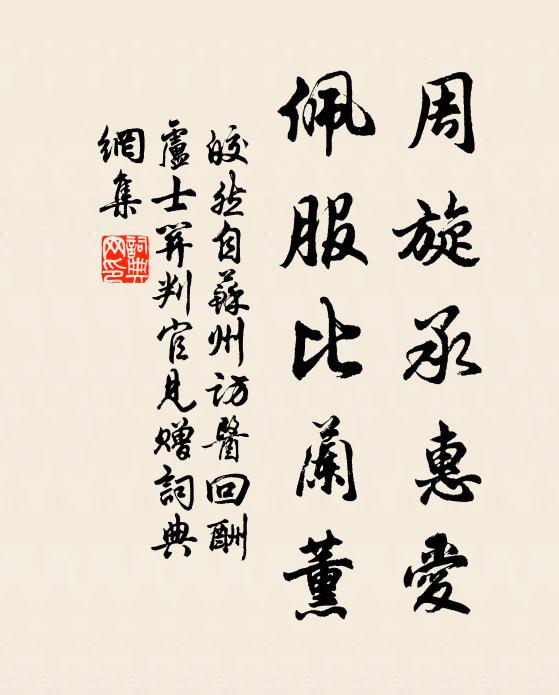 周旋承惠愛
佩服比蘭薰
皎然自蘇州訪醫回酬
盧士關判官見贈詞典
網集
詞典網印